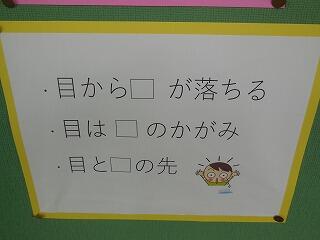 ・目から□が落ちる
・目は□のかがみ
・目と□の先